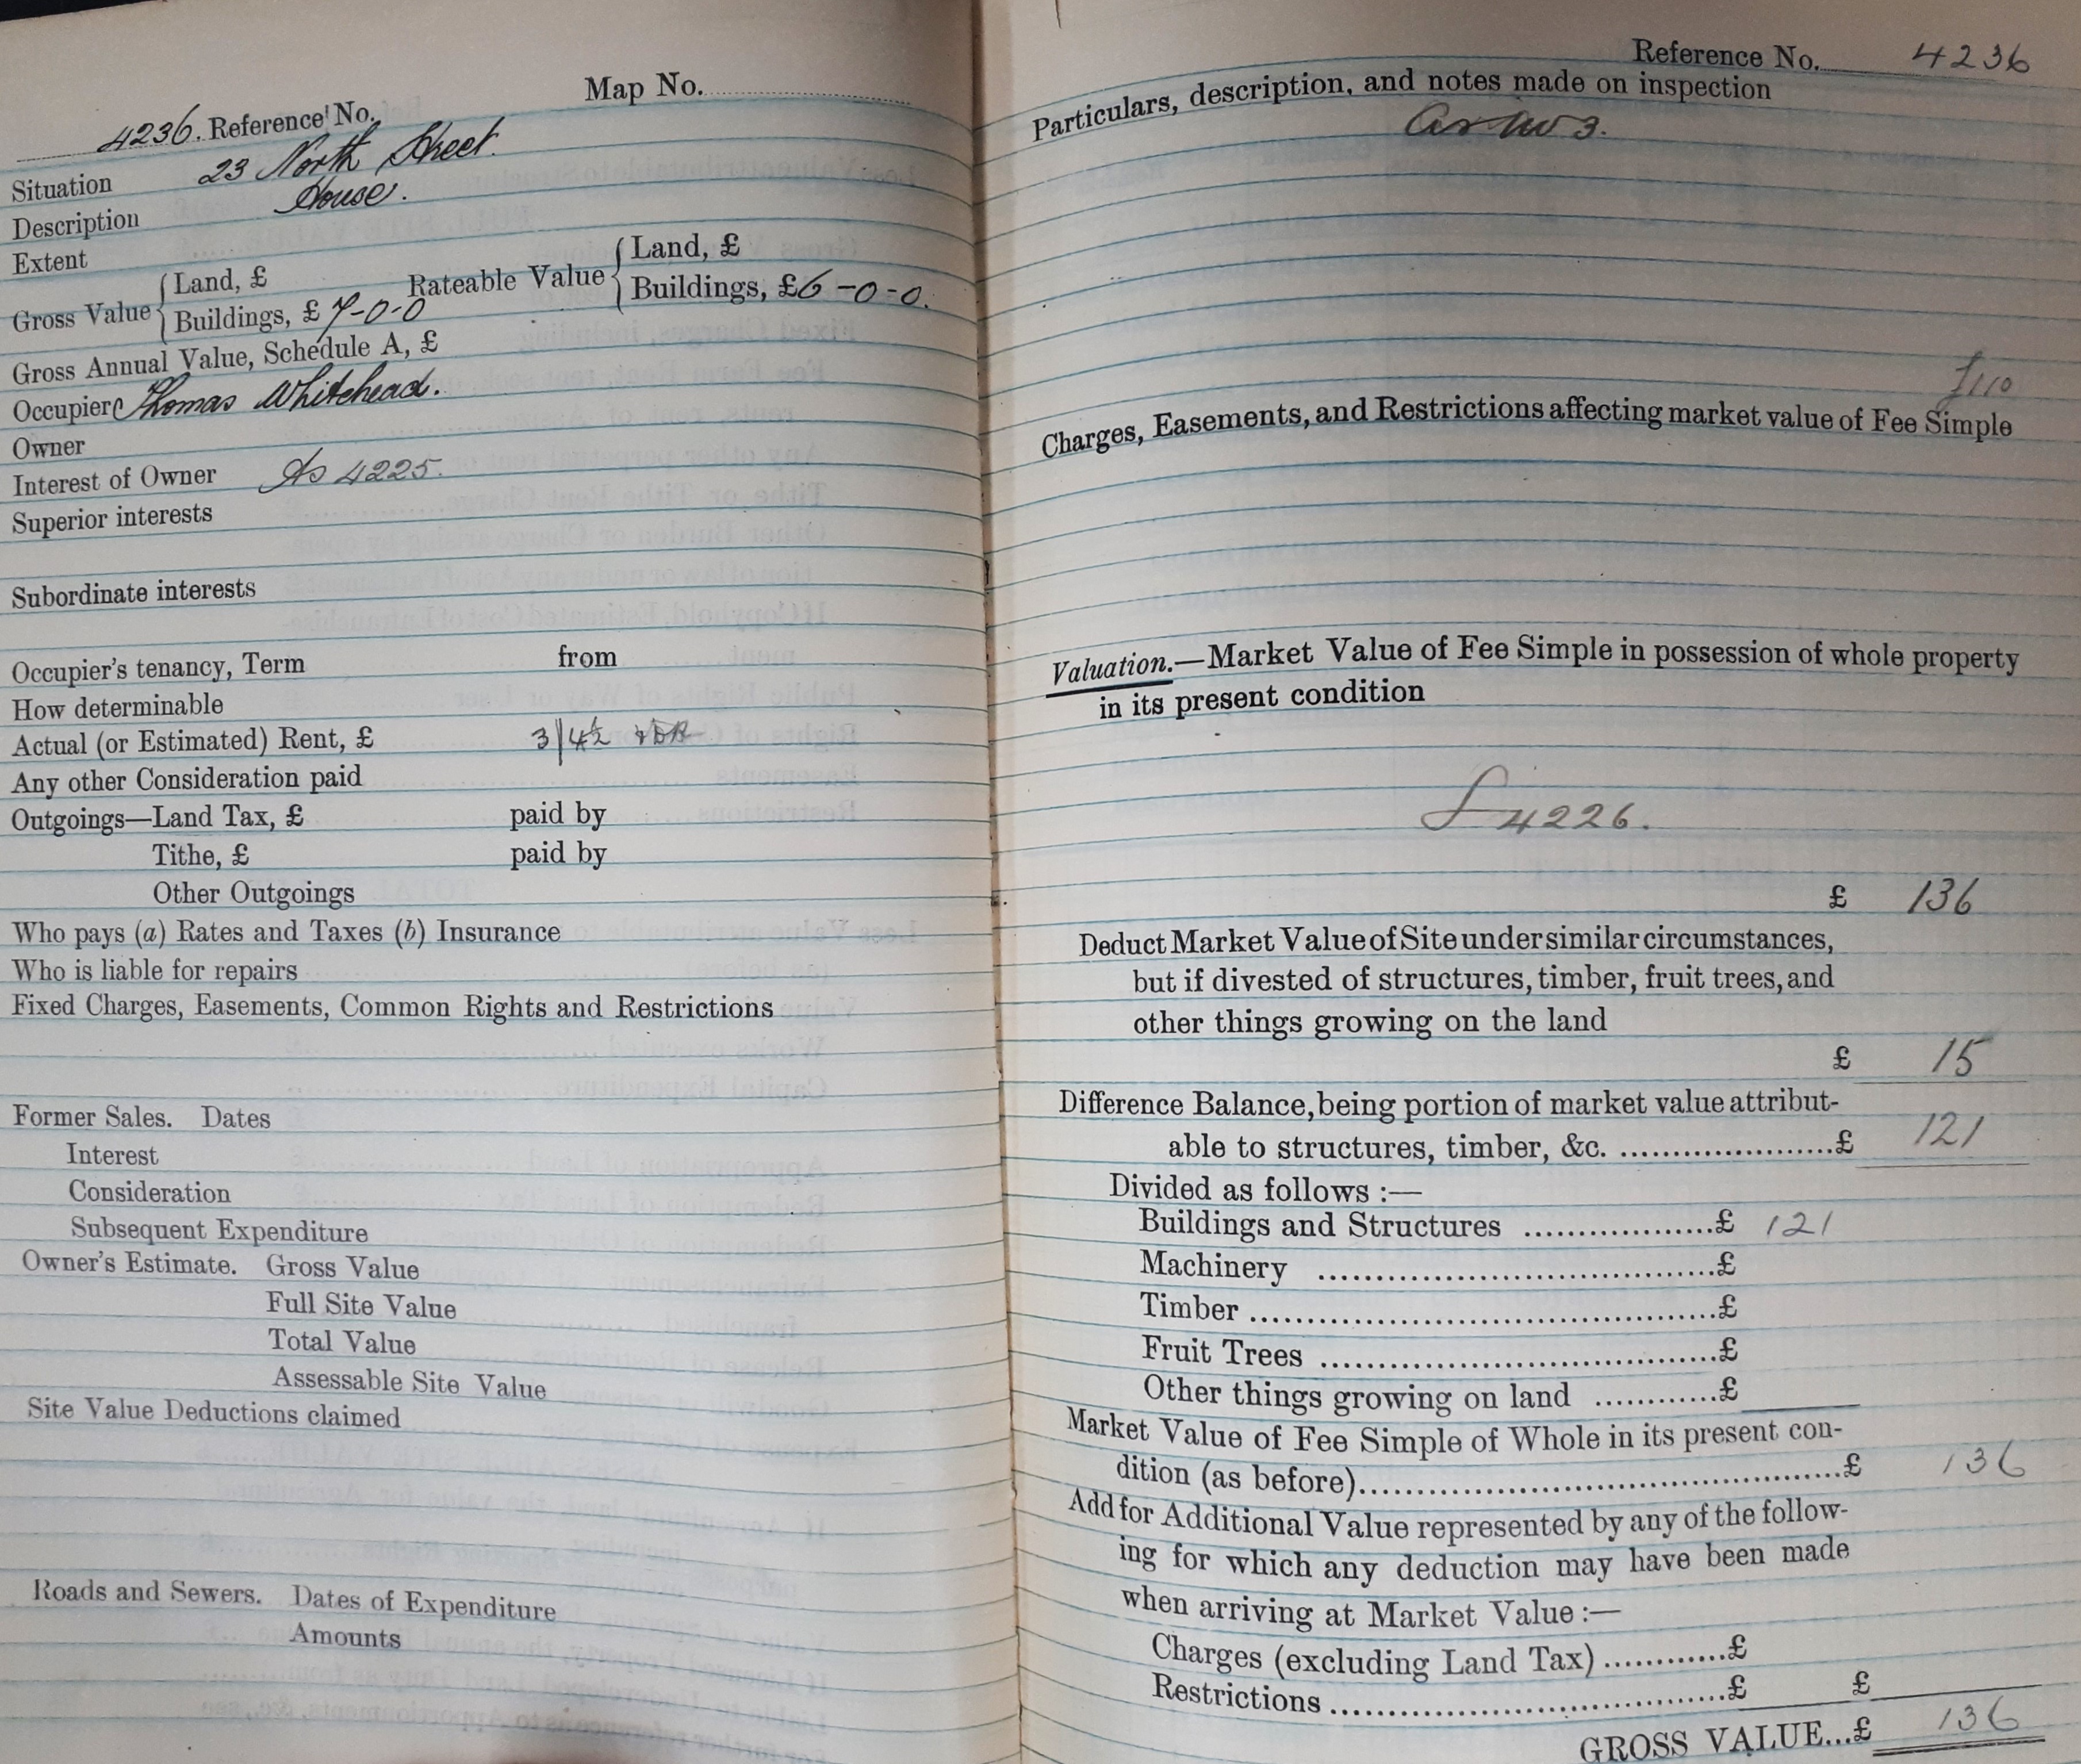 Map No.
4236. Reference No.
Situation 23 North Street.
Description House.
Extent
Gross Value { Land, £ Rateable Value { Land, £
Buildings, £ 7-0-0 Buildings, £6-0-0.
Gross Annual Value, Schedule A, £
Occupier Thomas Whitehead.
Owner
Interest of Owner As 4225.
Superior interests
Subordinate interests
Occupier's tenancy, Term from
How determinable
Actual (or Estimated) Rent, £ 3/4½
Any other Consideration paid
Outgoings—Land Tax, £ paid by
Tithe, £ paid by
Other Outgoings
Who pays (a) Rates and Taxes (b) Insurance
Who is liable for repairs
Fixed Charges, Easements, Common Rights and Restrictions
Former Sales. Dates
Interest
Consideration
Subsequent Expenditure
Owner's Estimate. Gross Value
Full Site Value
Total Value
Assessable Site Value
Site Value Deductions claimed
Roads and Sewers. Dates of Expenditure
Amounts
Reference No. 4236
Particulars, description, and notes made on inspection
£110
Charges, Easements, and Restrictions affecting market value of Fee Simple
Valuation.—Market Value of Fee Simple in possession of whole property
in its present condition
4226.
£ 136
Deduct Market Value of Site under similar circumstances,
but if divested of structures, timber, fruit trees, and
other things growing on the land
£ 15
Difference Balance, being portion of market value attribut-
able to structures, timber, &c. ....................£ 121
Divided as follows :—
Buildings and Structures ..................£ 121
Machinery ......................................£
Timber .............................................£
Fruit Trees ......................................£
Other things growing on land ...........£
Market Value of Fee Simple of Whole in its present con-
dition (as before)..............................................£ 136
Add for Additional Value represented by any of the follow-
ing for which any deduction may have been made
when arriving at Market Value :—
Charges (excluding Land Tax) ...........£
Restrictions ......................................£ £
GROSS VALUE...£ 136